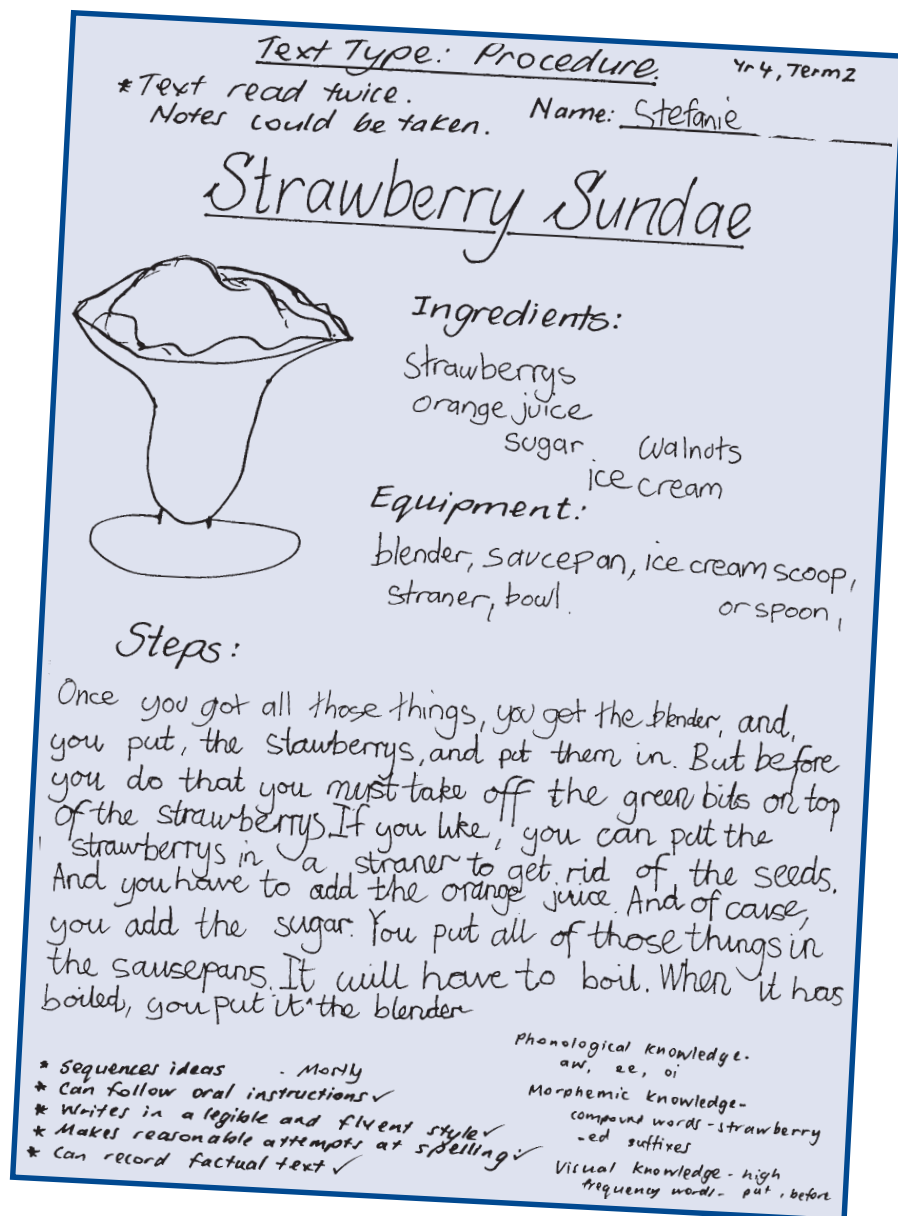 Text Type: Procedure.
Yr 4, Term 2
*Text read twice.
Notes could be taken.
Name: Stefanie
Strawberry Sundae
Ingredients:
Strawberrys
orange juice
sugar
walnots
ice cream
Equipment:
blender, saucepan, ice cream scoop,
straner, bowl.
or spoon,
Steps:
Once you got all those things, you get the blender, and,
you put, the stawberrys, and put them in. But before
you do that you must take off the green bits on top
of the strawberrys. If you like, you can put the
strawberrys in a straner to get rid of the seeds.
And you have to add the orange juice. And of cause,
you add the sugar. You put all of those things in
the sausepans. It will have to boil. When it has
boiled, you put it ^ the blender
* Sequences ideas - Mostly
* Can follow oral instructions ✓
* Writes in a legible and fluent style ✓
* Makes reasonable attempts at spelling ✓
* Can record factual text ✓
Phonological knowledge-
aw, ee, oi
Morphemic knowledge-
compound words - strawberry
-ed suffixes
Visual knowledge - high
frequency words - put, before